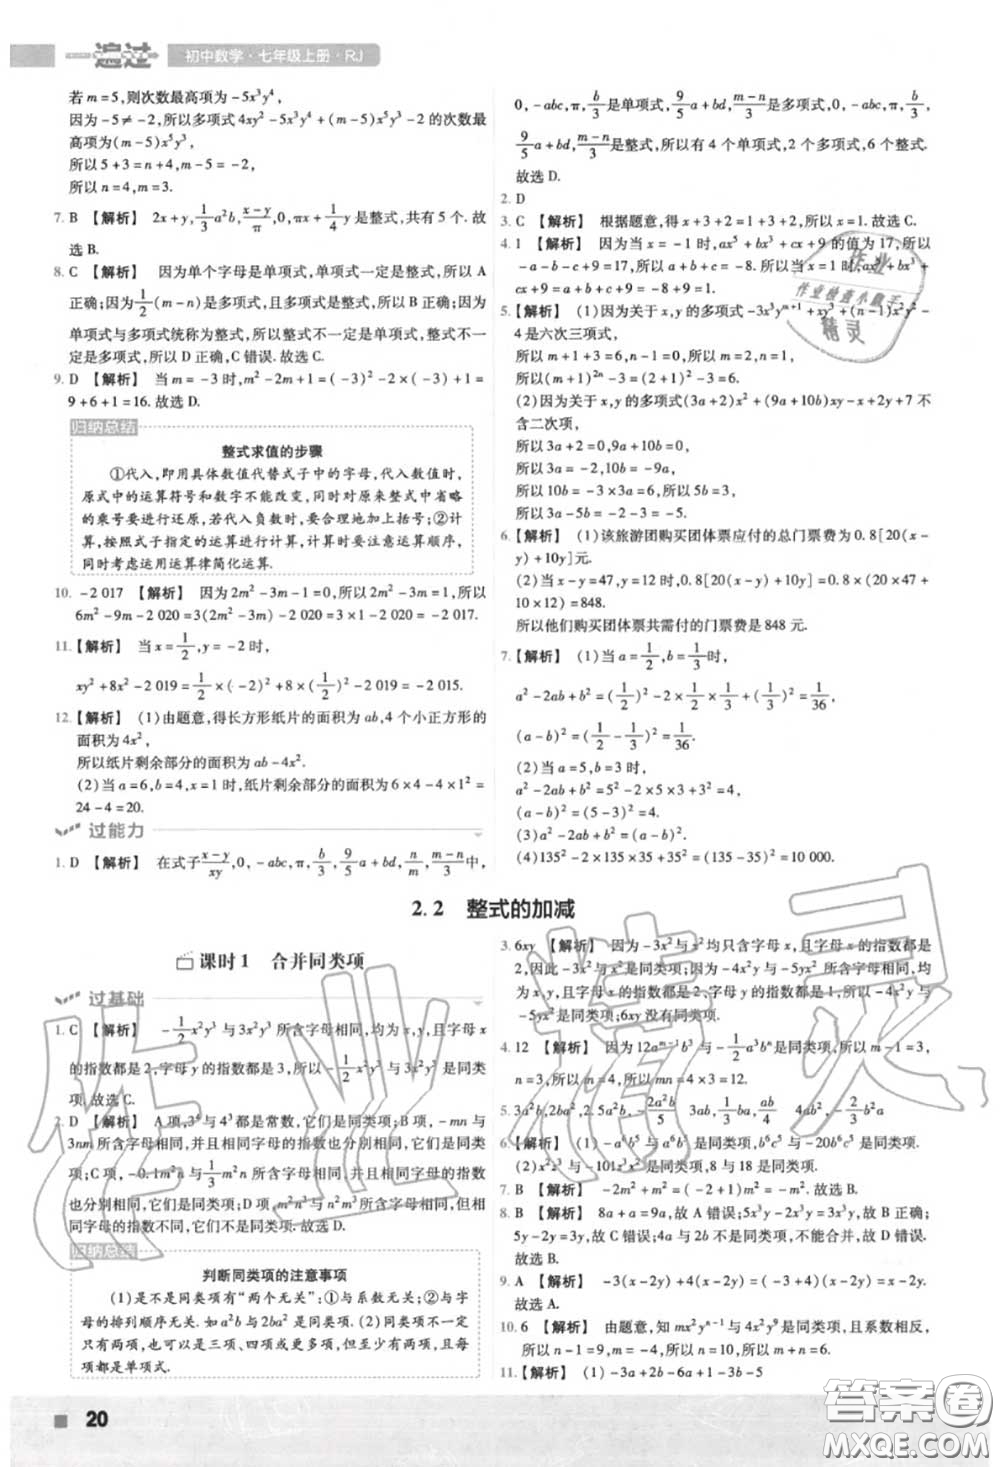 一遍过 初中数学·七年级上册·RJ
若 m=5,则次数最高项为 -5x³y⁴,
因为 -5≠-2,所以多项式 4xy²-5x³y⁴+(m-5)x⁵y³-2 的次数最
高项为(m-5)x⁵y³,
所以 5+3=n+4,m-5=-2,
所以 n=4,m=3.
7. B 【解析】 2x+y,1/3a²b,(x-y)/π,0,πx+1/4y 是整式,共有 5 个.故
选 B.
8. C 【解析】 因为单个字母是单项式,单项式是整式,所以 A
正确;因为1/2(m-n)是多项式,且多项式是整式,所以 B 正确;因为
单项式与多项式统称为整式,所以整式不一定是单项式,整式不一
定是多项式.所以 D 正确,C 错误.故选 C.
9. D 【解析】 当 m=-3 时,m²-2m+1=(-3)²-2×(-3)+1=
9+6+1=16.故选 D.
归纳总结
整式求值的步骤
①代入,即用具体数值代替式子中的字母,代入数值时,
原式中的运算符号和数字不能改变,同时对原来整式中省略
的乘号要进行还原,若代入负数时,要合理地加上括号;②计
算,按照式子指定的运算进行计算,计算时要注意运算顺序,
同时考虑运用运算律简化运算.
10. -2 017 【解析】 因为 2m²-3m-1=0,所以 2m²-3m=1,所以
6m²-9m-2 020=3(2m²-3m)-2 020=3×1-2 020=-2 017.
11.【解析】 当 x=1/2,y=-2 时,
xy²+8x²-2 019=1/2×(-2)²+8×(1/2)²-2 019=-2 015.
12.【解析】 (1)由题意,得长方形纸片的面积为 ab,4 个小正方形的
面积为 4x²,
所以纸片剩余部分的面积为 ab-4x².
(2)当 a=6,b=4,x=1 时,纸片剩余部分的面积为 6×4-4×1²=
24-4=20.
过能力
1. D 【解析】 在式子(x-y)/xy,0,-abc,π,b/3,9/5a+bd,n/m,(m-n)/3中,
0,-abc,π,b/3是单项式,9/5a+bd,(m-n)/3是多项式,0,-abc,π,b/3,
9/5a+bd,(m-n)/3是整式,所以有 4 个单项式,2 个多项式,6 个整式.
故选 D.
2. D
3. C 【解析】 根据题意,得 x+3+2=1+2+3,所以 x=1.故选 C.
4. 1 【解析】 因为当 x=-1 时,ax⁵+bx³+cx+9 的值为 17,所以
-a-b-c+9=17,所以 a+b+c=-8.所以当 x=1 时,ax⁵+bx³+
cx+9=a+b+c+9=-8+9=1.
5.【解析】 (1)因为关于 x,y 的多项式 -3x³yᵐ⁺¹+xy³+(n-1)x²y²-
4 是六次三项式,
所以 m+1+3=6,n-1=0,所以 m=2,n=1,
所以(m+1)²ⁿ-3=(2+1)²-3=6.
(2)因为关于 x,y 的多项式(3a+2)x²+(9a+10b)xy-x+2y+7 不
含二次项,
所以 3a+2=0,9a+10b=0,
所以 3a=-2,10b=-9a,
所以 10b=-3×3a=6,所以 5b=3,
所以 3a-5b=-2-3=-5.
6.【解析】 (1)该旅游团购买团体票应付的总门票费为 0.8[20(x-
y)+10y]元.
(2)当 x-y=47,y=12 时,0.8[20(x-y)+10y]=0.8×(20×47+
10×12)=848.
所以他们购买团体票共需付的门票费是 848 元.
7.【解析】 (1)当 a=1/2,b=1/3时,
a²-2ab+b²=(1/2)²-2×1/2×1/3+(1/3)²=1/36,
(a-b)²=(1/2-1/3)²=1/36.
(2)当 a=5,b=3 时,
a²-2ab+b²=5²-2×5×3+3²=4,
(a-b)²=(5-3)²=4.
(3)a²-2ab+b²=(a-b)².
(4)135²-2×135×35+35²=(135-35)²=10 000.
2.2 整式的加减
课时1 合并同类项
过基础
1. C 【解析】 -1/2x²y³ 与 3x²y³ 所含字母相同,均为 x,y,且字母 x
的指数都是 2,字母 y 的指数都是 3,所以 -1/2x²y³ 与 3x²y³ 是同类
项.故选 C.
2. D 【解析】 A 项,3⁴与 4³都是常数,它们是同类项;B 项,-mn 与
3nm 所含字母相同,并且相同字母的指数也分别相同,它们是同类
项;C 项,-0.1m²n 与1/3m²n 所含字母相同,并且相同字母的指数
也分别相同,它们是同类项;D 项,m²n³ 与 n²m³ 所含字母相同,但相
同字母的指数不同,它们不是同类项.故选 D.
归纳总结
判断同类项的注意事项
(1)是不是同类项有“两个无关”:①与系数无关;②与字
母的排列顺序无关.如 a²b 与 2ba²是同类项.(2)同类项不一定
只有两项,也可能是三项、四项或更多项,但至少有两项,且每
项都是单项式.
3. 6xy 【解析】 因为 -3x²与 x²都只含字母 x,且 x 的指数都是
2,因此 -3x²与 x²是同类项;因为 4x²y 与 -5yx² 所含字母相同,均
为 x,y,且这两项中 x 的指数都是 2,y 的指数都是 1,所以 4x²y 与
-5yx²是同类项;6xy 没有同类项.
4. 12 【解析】 因为 12aᵐ⁻¹b³ 与 -1/2a³bⁿ 是同类项,所以 m-1=3,
n=3.所以 m=4,n=3,所以 mn=4×3=12.
5. 3a²b,2ba²,2.5a²b,-2a²b/5 3ab,1/3ba,ab/4 4b²a,-2/3b²a
6.【解析】 (1)-a⁶b⁵与 a⁶b⁵是同类项,b⁶c⁵与 -20b⁶c⁵是同类项.
(2)x²z³与 -101z³x²是同类项,8 与 18 是同类项.
7. B 【解析】 -2m²+m²=(-2+1)m²=-m².故选 B.
8. B 【解析】 8a+a=9a,故 A 错误;5x²y-3yx²=2x²y,故 B 正确;
5y-2y=3y,故 C 错误;4a 与 2b 不是同类项,不能合并,故 D 错误.
故选 B.
9. A 【解析】 -3(x-2y)+4(x-2y)=(-3+4)(x-2y)=x-2y.
故选 A.
10. 6 【解析】 由题意,知 mx²yⁿ⁻¹与 4x²y⁹是同类项,且系数相反,
所以 n-1=9,m=-4,所以 n=10,所以 m+n=6.
11.【解析】 (1)-3a+2b-6a+1-3b-5
20
作业
作业检查小助手
精灵
作业精灵
答案圈
MXQE.COM